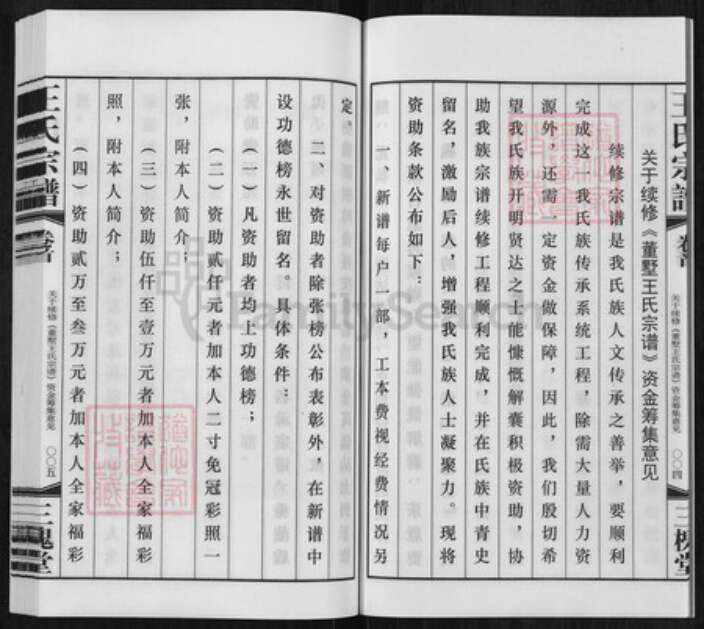 王氏宗谱
卷首
关于续修《董墅王氏宗谱》资金筹集意见
〇〇四
三槐堂
关于续修《董墅王氏宗谱》资金筹集意见
续修宗谱是我氏族人文传承之善举，要顺利
完成这一我氏族传承系统工程，除需大量人力资
源外，还需一定资金做保障，因此，我们殷切希
望我氏族开明贤达之士能慷慨解囊积极资助，协
助我族宗谱续修工程顺利完成，并在氏族中青史
留名，激励后人，增强我氏族人士凝聚力。现将
资助条款公布如下：
一、新谱每户一部，工本费视经费情况另
定，
二、对资助者除张榜公布表彰外，在新谱中
设功德榜永世留名。具体条件：
（一）凡资助者均上功德榜；
（二）资助贰仟元者加本人二寸免冠彩照一
张，附本人简介；
（三）资助伍仟至壹万元者加本人全家福彩
照，附本人简介；
（四）资助贰万至叁万元者加本人全家福彩
王氏宗谱
卷首
关于续修《董墅王氏宗谱》资金筹集意见
〇〇五
三槐堂
FamilySearch